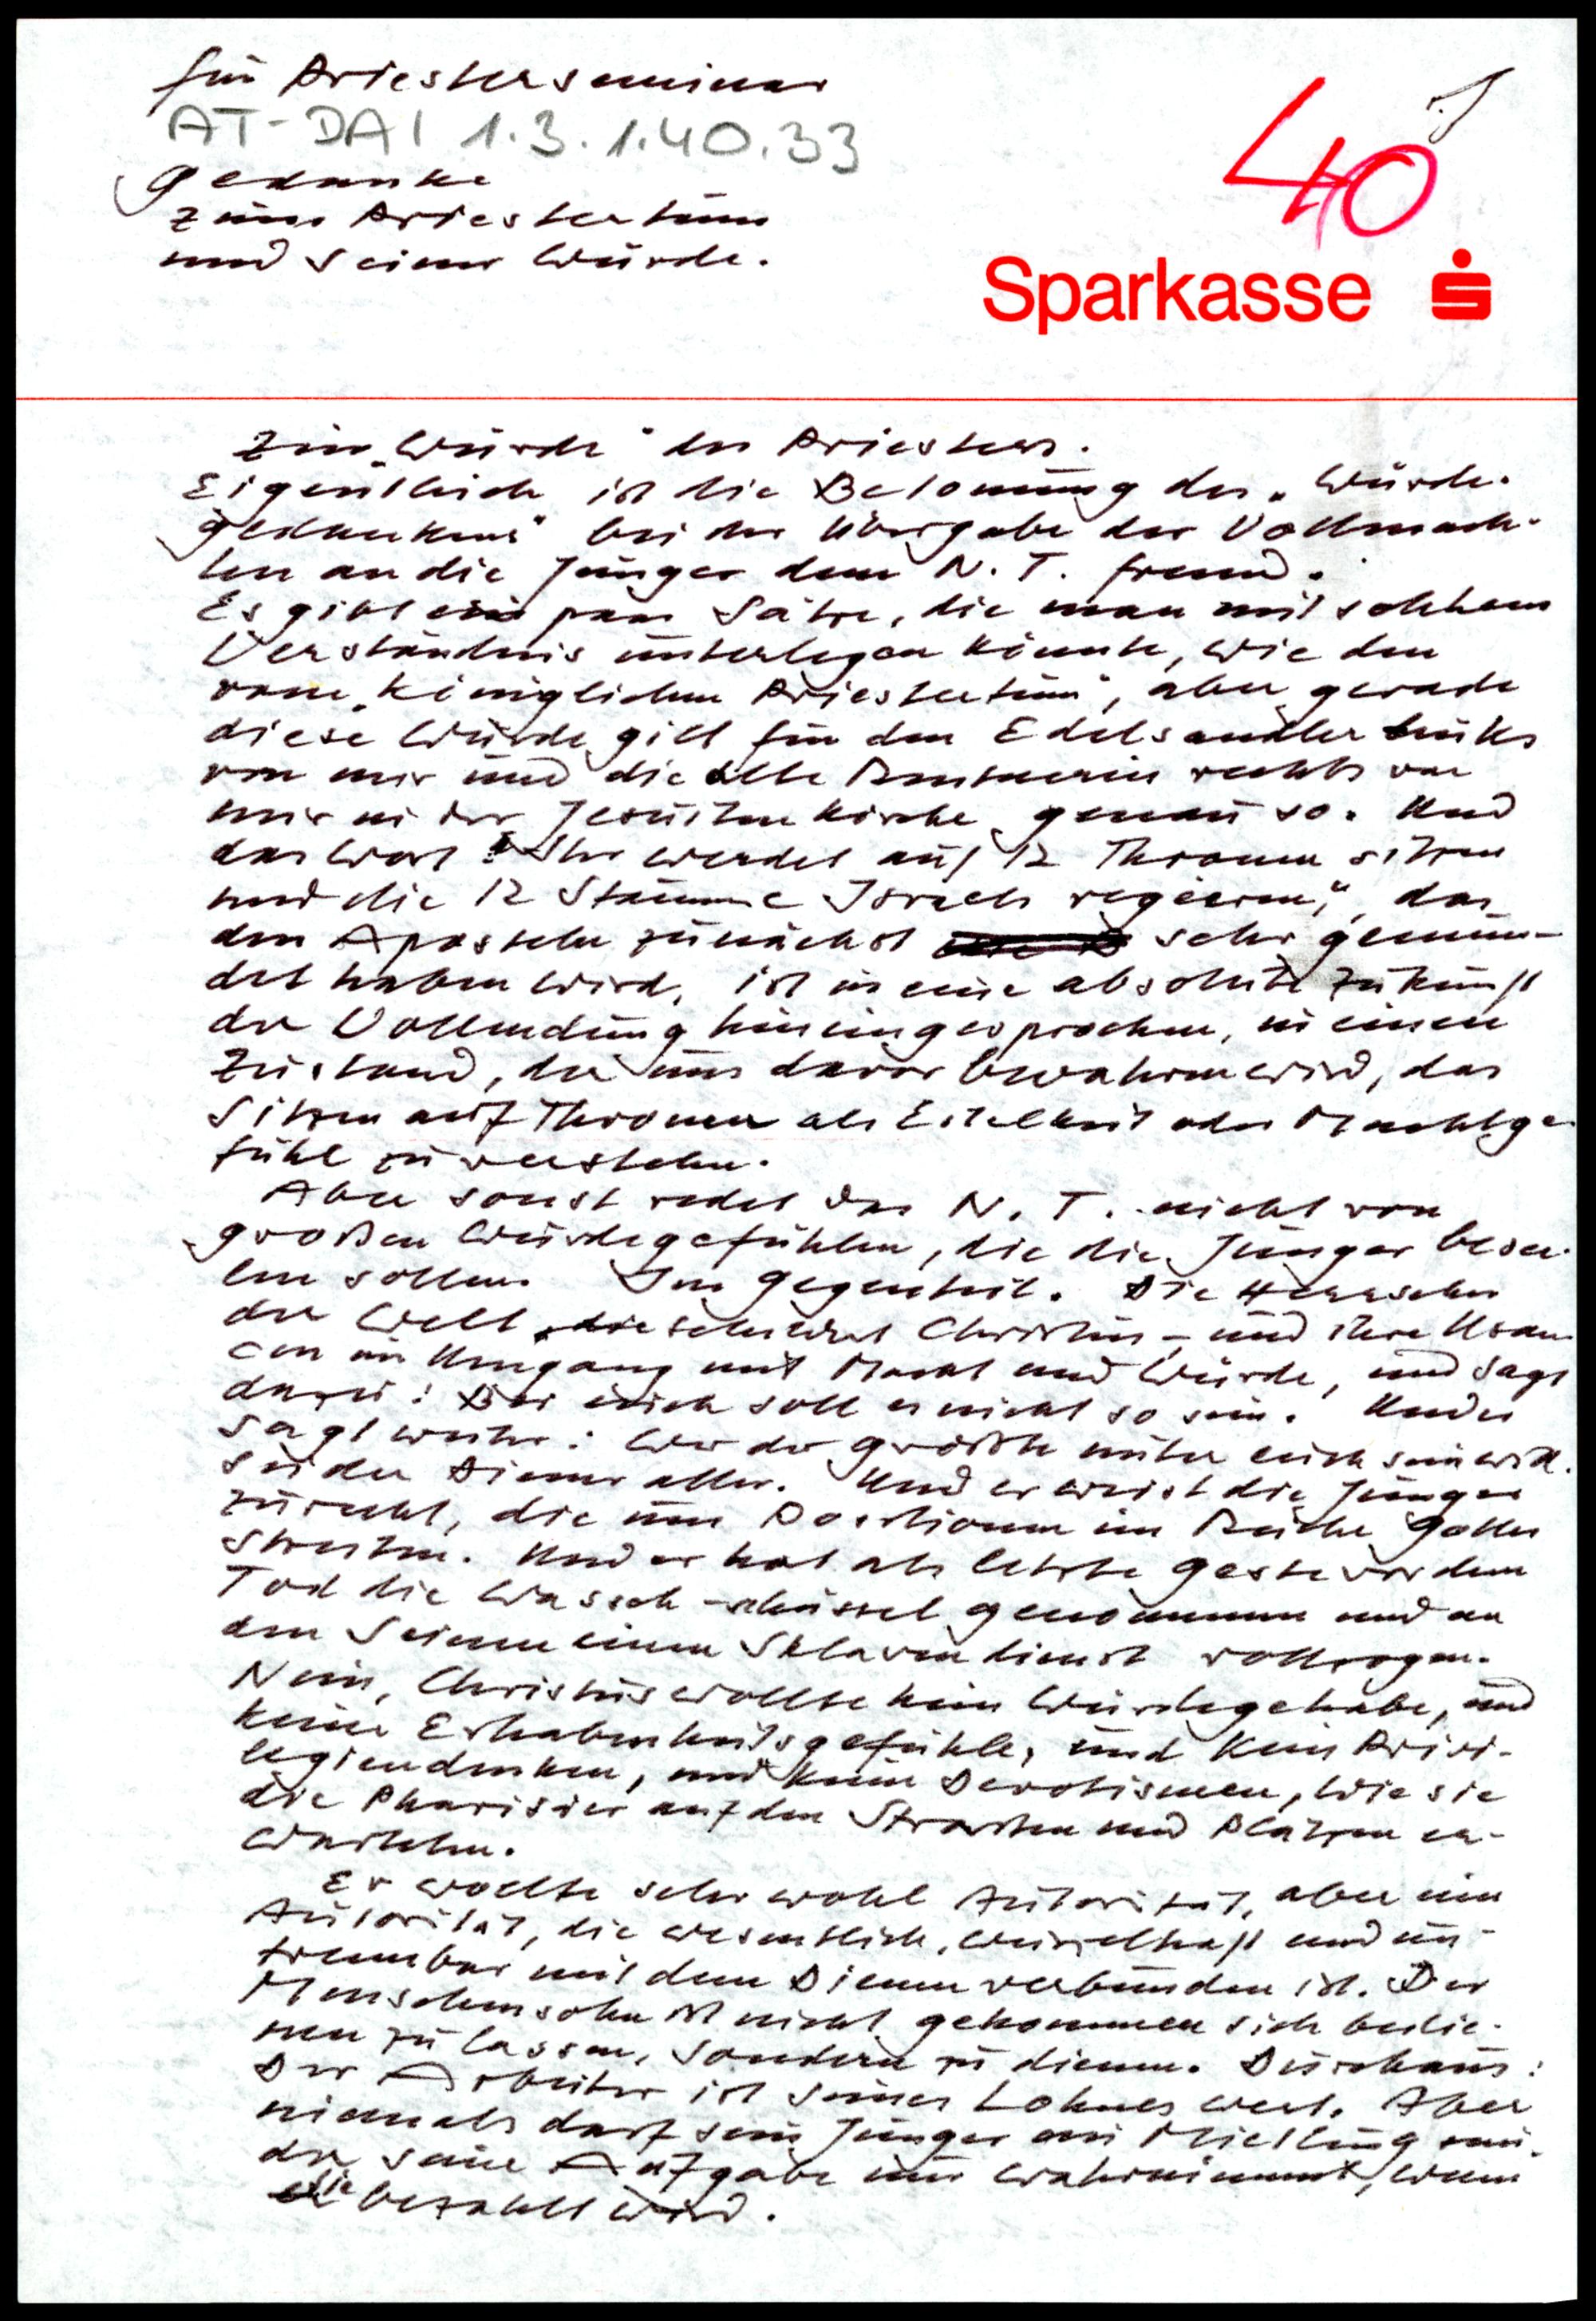 für Priesterseminar
AT-DAI 1.3.1.40.33
Gedanke
zum Priestertum
und seiner Würde.
40
Sparkasse
Zur „Würde" des Priesters.
Eigentlich ist die Betonung des „Würde-
gedankens" bei der Übergabe der Vollmach-
ten an die Jünger dem N. T. fremd.
Es gibt ein paar Sätze, die man mit solchem
Verständnis unterlegen könnte, wie den
vom „königlichen Priestertum", aber gerade
diese Würde gilt für den Edelsandler links
von mir und die alte Rentnerin rechts von
mir in der Jesuitenkirche genau so. Und
das Wort: „Ihr werdet auf 12 Thronen sitzen
und die 12 Stämme Israels regieren", das
den Aposteln zunächst sehr gemun-
det haben wird, ist in eine absolute Zukunft
der Vollendung hineingesprochen, in einen
Zustand, der uns davor bewahren wird, das
Sitzen auf Thronen als Eitelkeit oder Machtge-
fühl zu verstehen.
Aber sonst redet das N. T. nicht von
großen Würdegefühlen, die die Jünger besee-
len sollen. Im Gegenteil. Die Herrscher
der Welt, die schildert Christus – und ihre Usan-
cen im Umgang mit Macht und Würde, und sagt
dazu: Bei euch soll es nicht so sein. Und er
sagt weiter: Wer der Größte unter euch sein will,
sei der Diener aller. Und er weist die Jünger
zurecht, die um Positionen im Reiche Gottes
streiten. Und er hat als letzte Geste vor dem
Tod die Wasch-schüssel genommen und an
den Seinen einen Sklavendienst vollzogen.
Nein, Christus wollte kein Würdegehabe, und
keine Erhabenheitsgefühle, und kein Privi-
legiendenken, und keine Devotismen, wie sie
die Pharisäer auf den Strassen und Plätzen er-
warteten.
Er wollte sehr wohl Autorität, aber eine
Autorität, die wesentlich, wurzelhaft und un-
trennbar mit dem Dienen verbunden ist. Der
Menschensohn ist nicht gekommen sich bedie-
nen zu lassen, sondern zu dienen. Durchaus:
Der Arbeiter ist seines Lohnes wert. Aber
niemals darf sein Jünger ein Mietling sein,
der seine Aufgabe nur wahrnimmt, wenn
sie bezahlt wird.